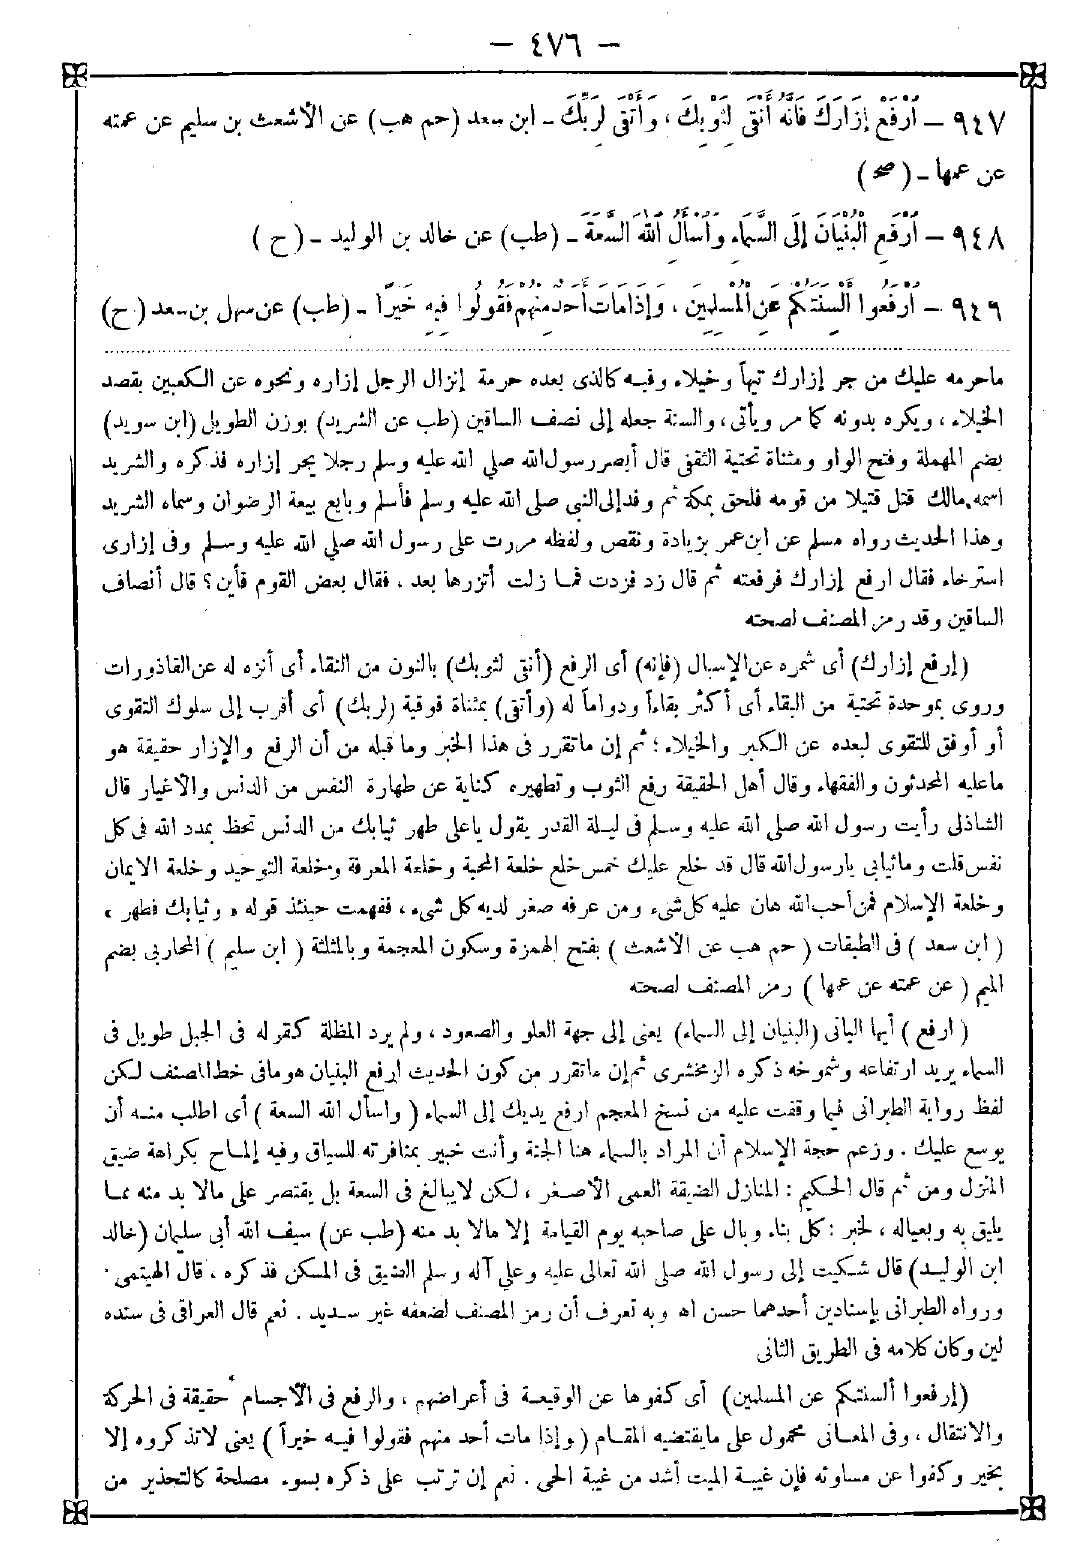 — ٤٧٦ —
٩٤٧ — اَرْفَعْ إِزَارَكَ فَإِنَّهُ أَنْقَى لِثَوْبِكَ ، وَأَتْقَى لِرَبِّكَ - ابن سعد (حم هب) عن الأشعث بن سليم عن عمته
عن عمها - ( صح )
٩٤٨ — اَرْفَعِ الْبُنْيَانَ إِلَى السَّمَاءِ وَاسْأَلِ اللهَ السَّعَةَ - (طب) عن خالد بن الوليد - ( ح )
٩٤٩ — اَرْفَعُوا أَلْسِنَتَكُمْ عَنِ الْمُسْلِمِينَ ، وَإِذَا مَاتَ أَحَدٌ مِنْهُمْ فَقُولُوا فِيهِ خَيْرًا - (طب) عن سهل بن سعد ( ح )
ماحرمه عليك من جر إزارك تيهاً وخيلاء وفيه كالذى بعده حرمة إنزال الرجل إزاره ونحوه عن الكعبين بقصد
الخيلاء ، ويكره بدونه كما مر ويأتى ، والسنة جعله إلى نصف الساقين (طب عن الشريد) بوزن الطويل (ابن سويد)
بضم المهملة وفتح الواو ومثناة تحتية الثقفى قال أبصر رسول الله صلى الله عليه وسلم رجلا يجر إزاره فذكره والشريد
اسمه مالك قتل قتيلا من قومه فلحق بمكة ثم وفد إلى النبي صلى الله عليه وسلم فأسلم وبايع بيعة الرضوان وسماه الشريد
وهذا الحديث رواه مسلم عن ابن عمر بزيادة ونقص ولفظه مررت على رسول الله صلى الله عليه وسلم وفى إزارى
استرخاء فقال ارفع إزارك فرفعته ثم قال زد فزدت فما زلت أتزرها بعد ، فقال بعض القوم فأين ؟ قال أنصاف
الساقين وقد رمز المصنف لصحته
(إرفع إزارك) أى شمره عن الإسبال (فإنه) أى الرفع (أنقى لثوبك) بالنون من النقاء أى أنزه له عن القاذورات
وروى بموحدة تحتية من البقاء أى أكثر بقاءاً ودواماً له (وأتقى) بمثناة فوقية (لربك) أى أقرب إلى سلوك التقوى
أو أوفق للتقوى لبعده عن الكبر والخيلاء ؛ ثم إن ماتقرر فى هذا الخبر وما قبله من أن الرفع والإزار حقيقة هو
ماعليه المحدثون والفقهاء وقال أهل الحقيقة رفع الثوب وتطهيره كناية عن طهارة النفس من الدنس والأغيار قال
الشاذلى رأيت رسول الله صلى الله عليه وسلم فى ليلة القدر يقول ياعلى طهر ثيابك من الدنس تحظ بمدد الله فى كل
نفس قلت وماثيابى يارسول الله قال قد خلع عليك خمس خلع خلعة المحبة وخلعة المعرفة وخلعة التوحيد وخلعة الايمان
وخلعة الإسلام فمن أحب الله هان عليه كل شىء ومن عرفه صغر لديه كل شىء ، ففهمت حينئذ قوله « وثيابك فطهر »
( ابن سعد ) فى الطبقات ( حم هب عن الأشعث ) بفتح الهمزة وسكون المعجمة وبالمثلثة ( ابن سليم ) المحاربى بضم
الميم ( عن عمته عن عمها ) رمز المصنف لصحته
( ارفع ) أيها البانى (البنيان إلى السماء) يعنى إلى جهة العلو والصعود ، ولم يرد المظلة كقوله فى الجبل طويل فى
السماء يريد ارتفاعه وشموخه ذكره الزمخشرى ثم إن ماتقرر من كون الحديث ارفع البنيان هو مافى خط المصنف لكن
لفظ رواية الطبرانى فيما وقفت عليه من نسخ المعجم ارفع يديك إلى السماء ( واسأل الله السعة ) أى اطلب منه أن
يوسع عليك . وزعم حجة الإسلام أن المراد بالسماء هنا الجنة وأنت خبير بمنافرته للسياق وفيه إلماح بكراهة ضيق
المنزل ومن ثم قال الحكيم : المنازل الضيقة العمى الأصغر ، لكن لايبالغ فى السعة بل يقتصر على مالا بد منه مما
يليق به وبعياله ، لخبر : كل بناء وبال على صاحبه يوم القيامة إلا مالا بد منه (طب عن) سيف الله أبى سليمان (خالد
ابن الوليد) قال شكيت إلى رسول الله صلى الله تعالى عليه وعلى آله وسلم الضيق فى المسكن فذكره ، قال الهيتمى
ورواه الطبرانى بإسنادين أحدهما حسن اه وبه تعرف أن رمز المصنف لضعفه غير سديد . نعم قال العراقى فى سنده
لين وكان كلامه فى الطريق الثانى
(إرفعوا ألسنتكم عن المسلمين) أى كفوها عن الوقيعة فى أعراضهم ، والرفع فى الأجسام حقيقة فى الحركة
والانتقال ، وفى المعانى محمول على مايقتضيه المقام ( وإذا مات أحد منهم فقولوا فيه خيراً ) يعنى لاتذكروه إلا
بخير وكفوا عن مساوئه فإن غيبة الميت أشد من غيبة الحى . نعم إن ترتب على ذكره بسوء مصلحة كالتحذير من